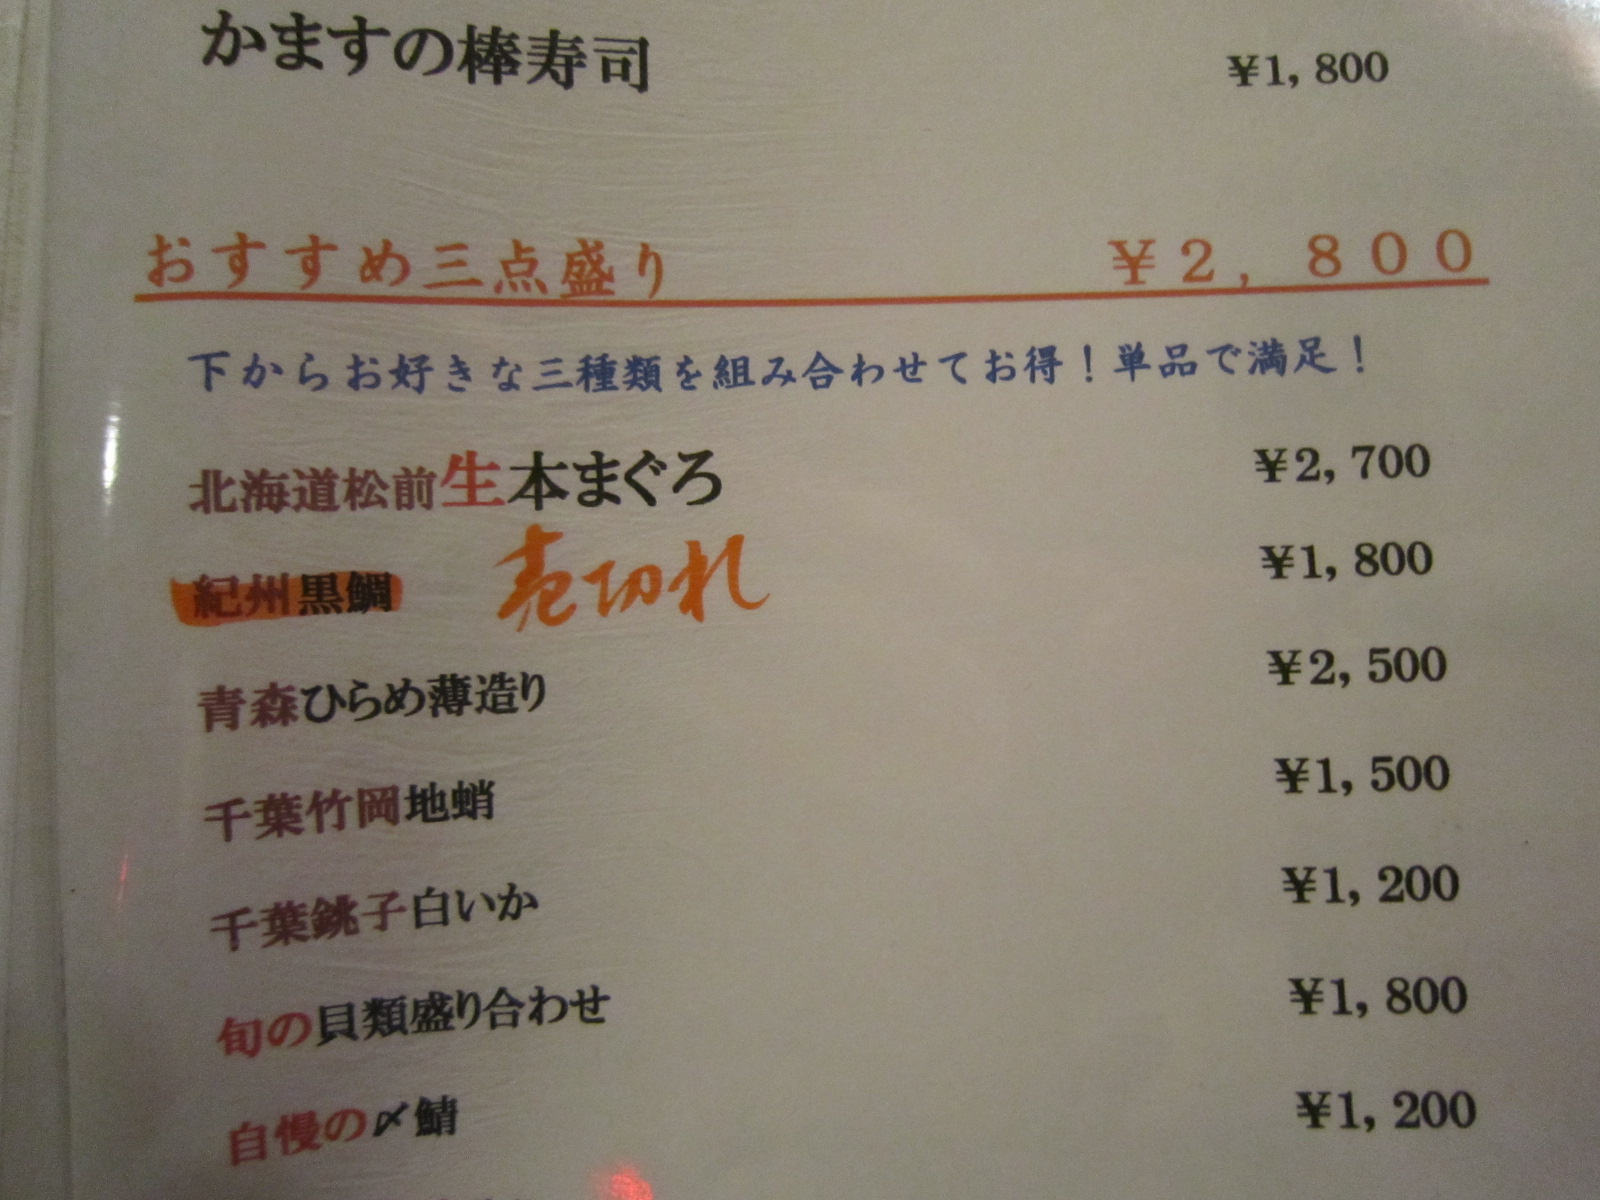 かますの棒寿司 ¥1,800
おすすめ三点盛り ¥2,800
下からお好きな三種類を組み合わせてお得！単品で満足！
北海道松前生本まぐろ ¥2,700
紀州黒鯛 売切れ ¥1,800
青森ひらめ薄造り ¥2,500
千葉竹岡地蛸 ¥1,500
千葉銚子白いか ¥1,200
旬の貝類盛り合わせ ¥1,800
自慢の〆鯖 ¥1,200